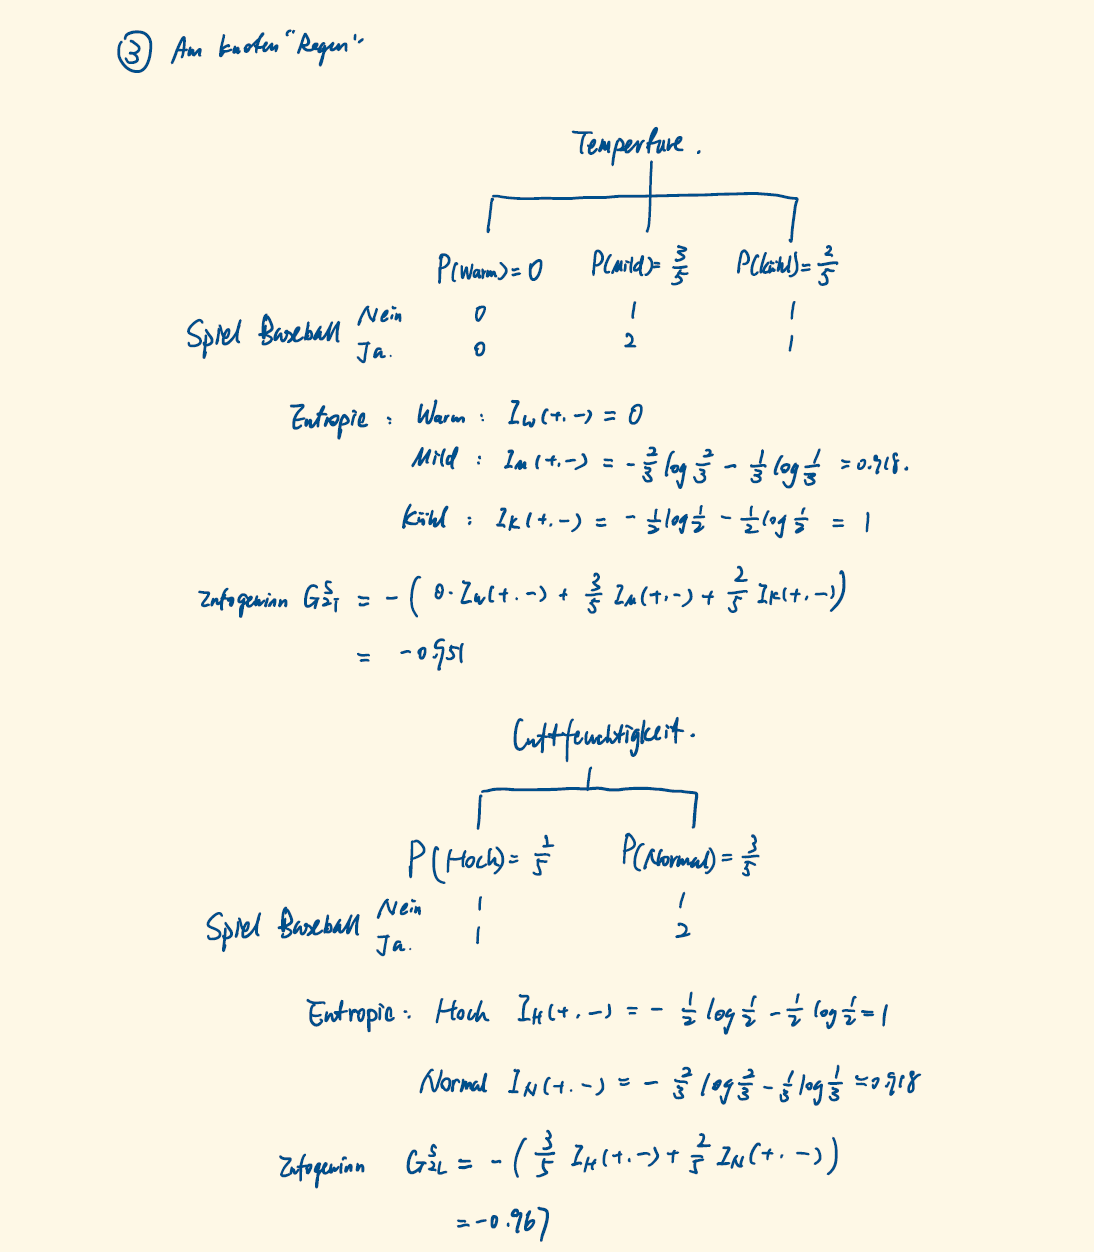 ③ Am knoten "Regen"
Temperture.
P(Warm)=0 P(Mild)=3/5 P(Kühl)=2/5
Spiel Baseball Nein 0 1 1
Ja. 0 2 1
Entropie : Warm : I_W(+.-) = 0
Mild : I_M(+.-) = -2/3 log 2/3 - 1/3 log 1/3 = 0.918.
Kühl : I_K(+.-) = -1/2 log 1/2 - 1/2 log 1/2 = 1
Infogewinn G^S_2T = -(0·I_W(+.-) + 3/5 I_M(+.-) + 2/5 I_K(+.-))
= -0.951
Luftfeuchtigkeit.
P(Hoch)=2/5 P(Normal)=3/5
Spiel Baseball Nein 1 1
Ja. 1 2
Entropie : Hoch I_H(+.-) = -1/2 log 1/2 - 1/2 log 1/2 = 1
Normal I_N(+.-) = -2/3 log 2/3 - 1/3 log 1/3 = 0.918
Infogewinn G^S_2L = -(3/5 I_H(+.-) + 2/5 I_N(+.-))
= -0.967